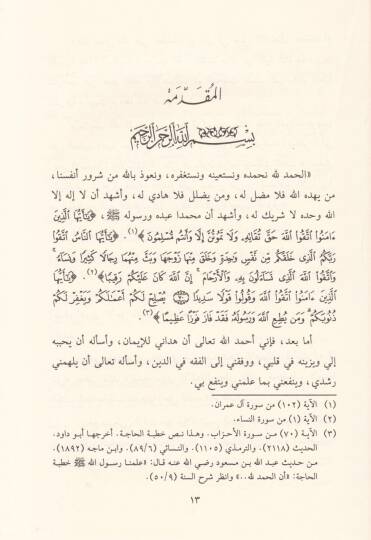 المُقَدِّمَة
بِسْمِ اللهِ الرَّحْمٰنِ الرَّحِيمِ
«الحمد لله نحمده ونستعينه ونستغفره، ونعوذ بالله من شرور أنفسنا،
من يهده الله فلا مضل له، ومن يضلل فلا هادي له، وأشهد أن لا إله إلا
الله وحده لا شريك له، وأشهد أن محمدا عبده ورسوله ﷺ، ﴿يَٰٓأَيُّهَا ٱلَّذِينَ
ءَامَنُوا۟ ٱتَّقُوا۟ ٱللَّهَ حَقَّ تُقَاتِهِۦ وَلَا تَمُوتُنَّ إِلَّا وَأَنتُم مُّسْلِمُونَ﴾(١). ﴿يَٰٓأَيُّهَا ٱلنَّاسُ ٱتَّقُوا۟
رَبَّكُمُ ٱلَّذِى خَلَقَكُم مِّن نَّفْسٍ وَٰحِدَةٍ وَخَلَقَ مِنْهَا زَوْجَهَا وَبَثَّ مِنْهُمَا رِجَالًا كَثِيرًا وَنِسَآءً ۚ
وَٱتَّقُوا۟ ٱللَّهَ ٱلَّذِى تَسَآءَلُونَ بِهِۦ وَٱلْأَرْحَامَ ۚ إِنَّ ٱللَّهَ كَانَ عَلَيْكُمْ رَقِيبًا﴾(٢). ﴿يَٰٓأَيُّهَا
ٱلَّذِينَ ءَامَنُوا۟ ٱتَّقُوا۟ ٱللَّهَ وَقُولُوا۟ قَوْلًا سَدِيدًا ۝ يُصْلِحْ لَكُمْ أَعْمَٰلَكُمْ وَيَغْفِرْ لَكُمْ
ذُنُوبَكُمْ ۗ وَمَن يُطِعِ ٱللَّهَ وَرَسُولَهُۥ فَقَدْ فَازَ فَوْزًا عَظِيمًا﴾(٣).
أما بعد، فإني أحمد الله تعالى أن هداني للإيمان، وأسأله أن يحببه
إلي ويزينه في قلبي، ووفقني إلى الفقه في الدين، وأسأله تعالى أن يلهمني
رشدي، وينفعني بما علمني وينفع بي.
(١) الآية (١٠٢) من سورة آل عمران.
(٢) الآية (١) من سورة النساء.
(٣) الآية (٧٠) من سورة الأحزاب. وهذا نص خطبة الحاجة. أخرجها أبو داود.
الحديث (٢١١٨). والترمذي (١١٠٥). والنسائي (٨٩/٦). وابن ماجه (١٨٩٢).
من حديث عبد الله بن مسعود رضي الله عنه قال: «علمنا رسول الله ﷺ خطبة
الحاجة: «أن الحمد لله..» وانظر شرح السنة (٥٠/٩)
١٣